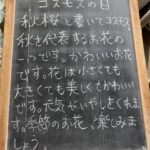 コスモスの日
秋桜と書いてコスモス、
秋を代表するお花の
一つです。かわいいお花
です。花は小さくても
大きくても美しくてかわい
いです。元気がいやしをくれま
す。季節のお花、楽しみま
しょう。